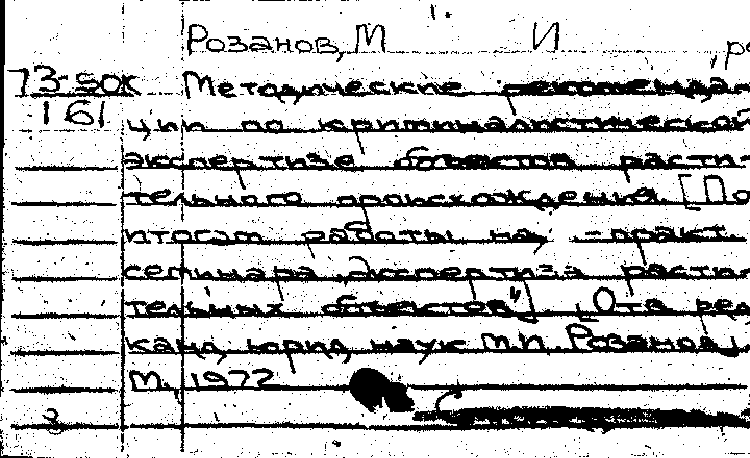 Розанов, М И , ре
73-50к Методические рекоменда
161 ции по криминалистической
экспертизе объектов расти-
тельного происхождения. [По
итогам работы на - практ.
семинара „Экспертиза расти
тельных объектов"]. [Отв ред
канд юрид наук М.И. Розанов].
М., 1972